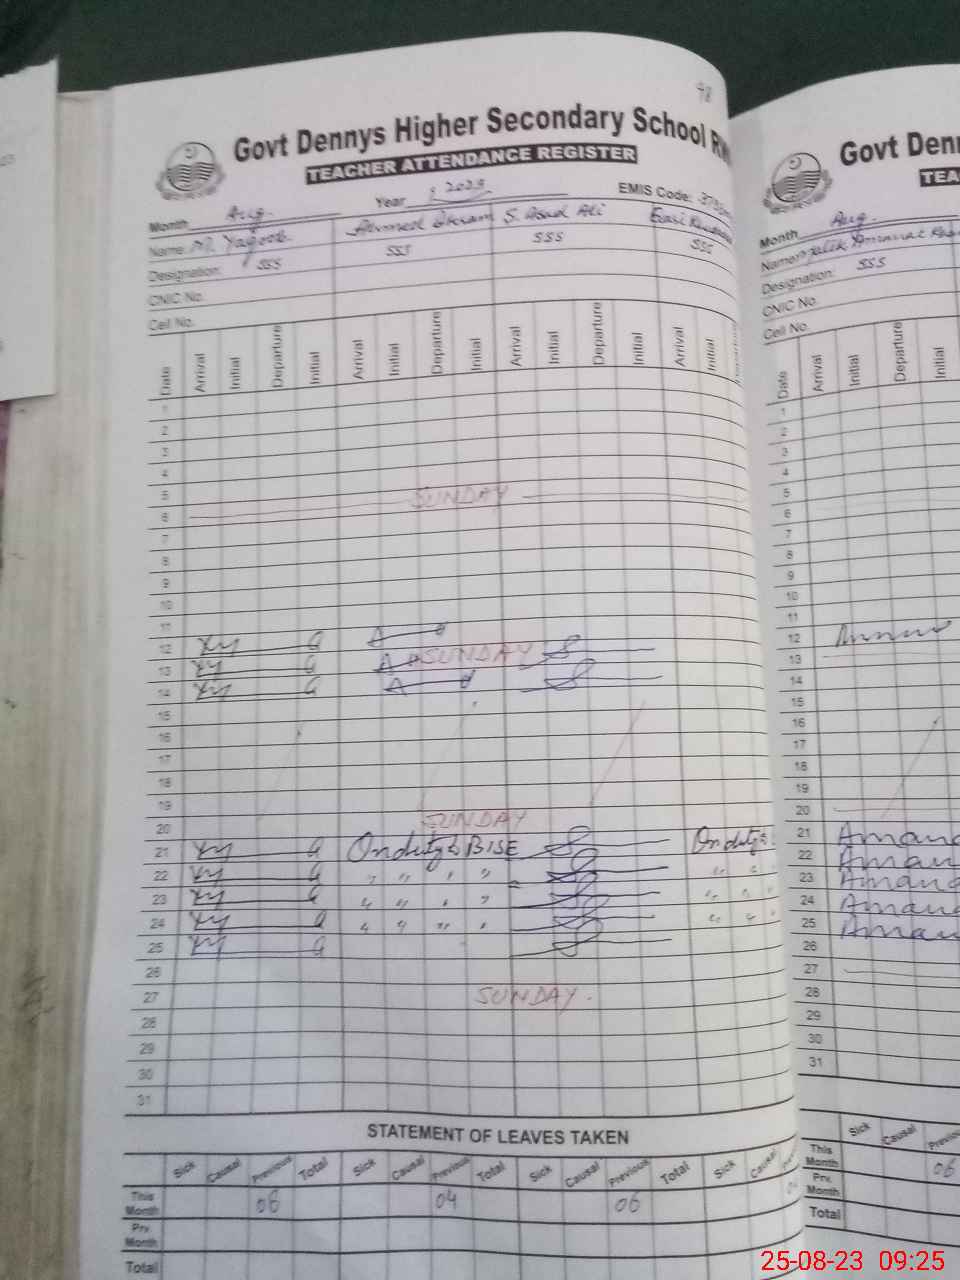 48
Govt Dennys Higher Secondary School RW
TEACHER ATTENDANCE REGISTER
Month Aug. Year 2023 EMIS Code:
Name: M. Yaqoob Ahmed S. Asad Ali
Designation: SSS SSS SSS SSS
CNIC No.
Cell No.
Date Arrival Initial Departure Initial Arrival Initial Departure Initial Arrival Initial Departure Initial Arrival Initial
1
2
3
4
5
6 SUNDAY
7
8
9
10
11
12
13 SUNDAY
14
15
16
17
18
19
20 SUNDAY
21 On duty BISE On duty
22 " " " "
23 " " " "
24 " " " "
25
26
27 SUNDAY.
28
29
30
31
STATEMENT OF LEAVES TAKEN
Sick Causal Previous Total Sick Causal Previous Total Sick Causal Previous Total Sick Causal
This Month 06 04 06
Prv. Month
Total
Govt Denn
TEA
Month Aug.
Name: Malik
Designation: SSS
CNIC No.
Cell No.
Date Arrival Initial Departure Initial
1
2
3
4
5
6
7
8
9
10
11
12
13
14
15
16
17
18
19
20
21 Amana
22 Aman
23 Amana
24 Amana
25 Aman
26
27
28
29
30
31
Sick Causal Previous
This Month 06
Prv. Month
Total
25-08-23 09:25